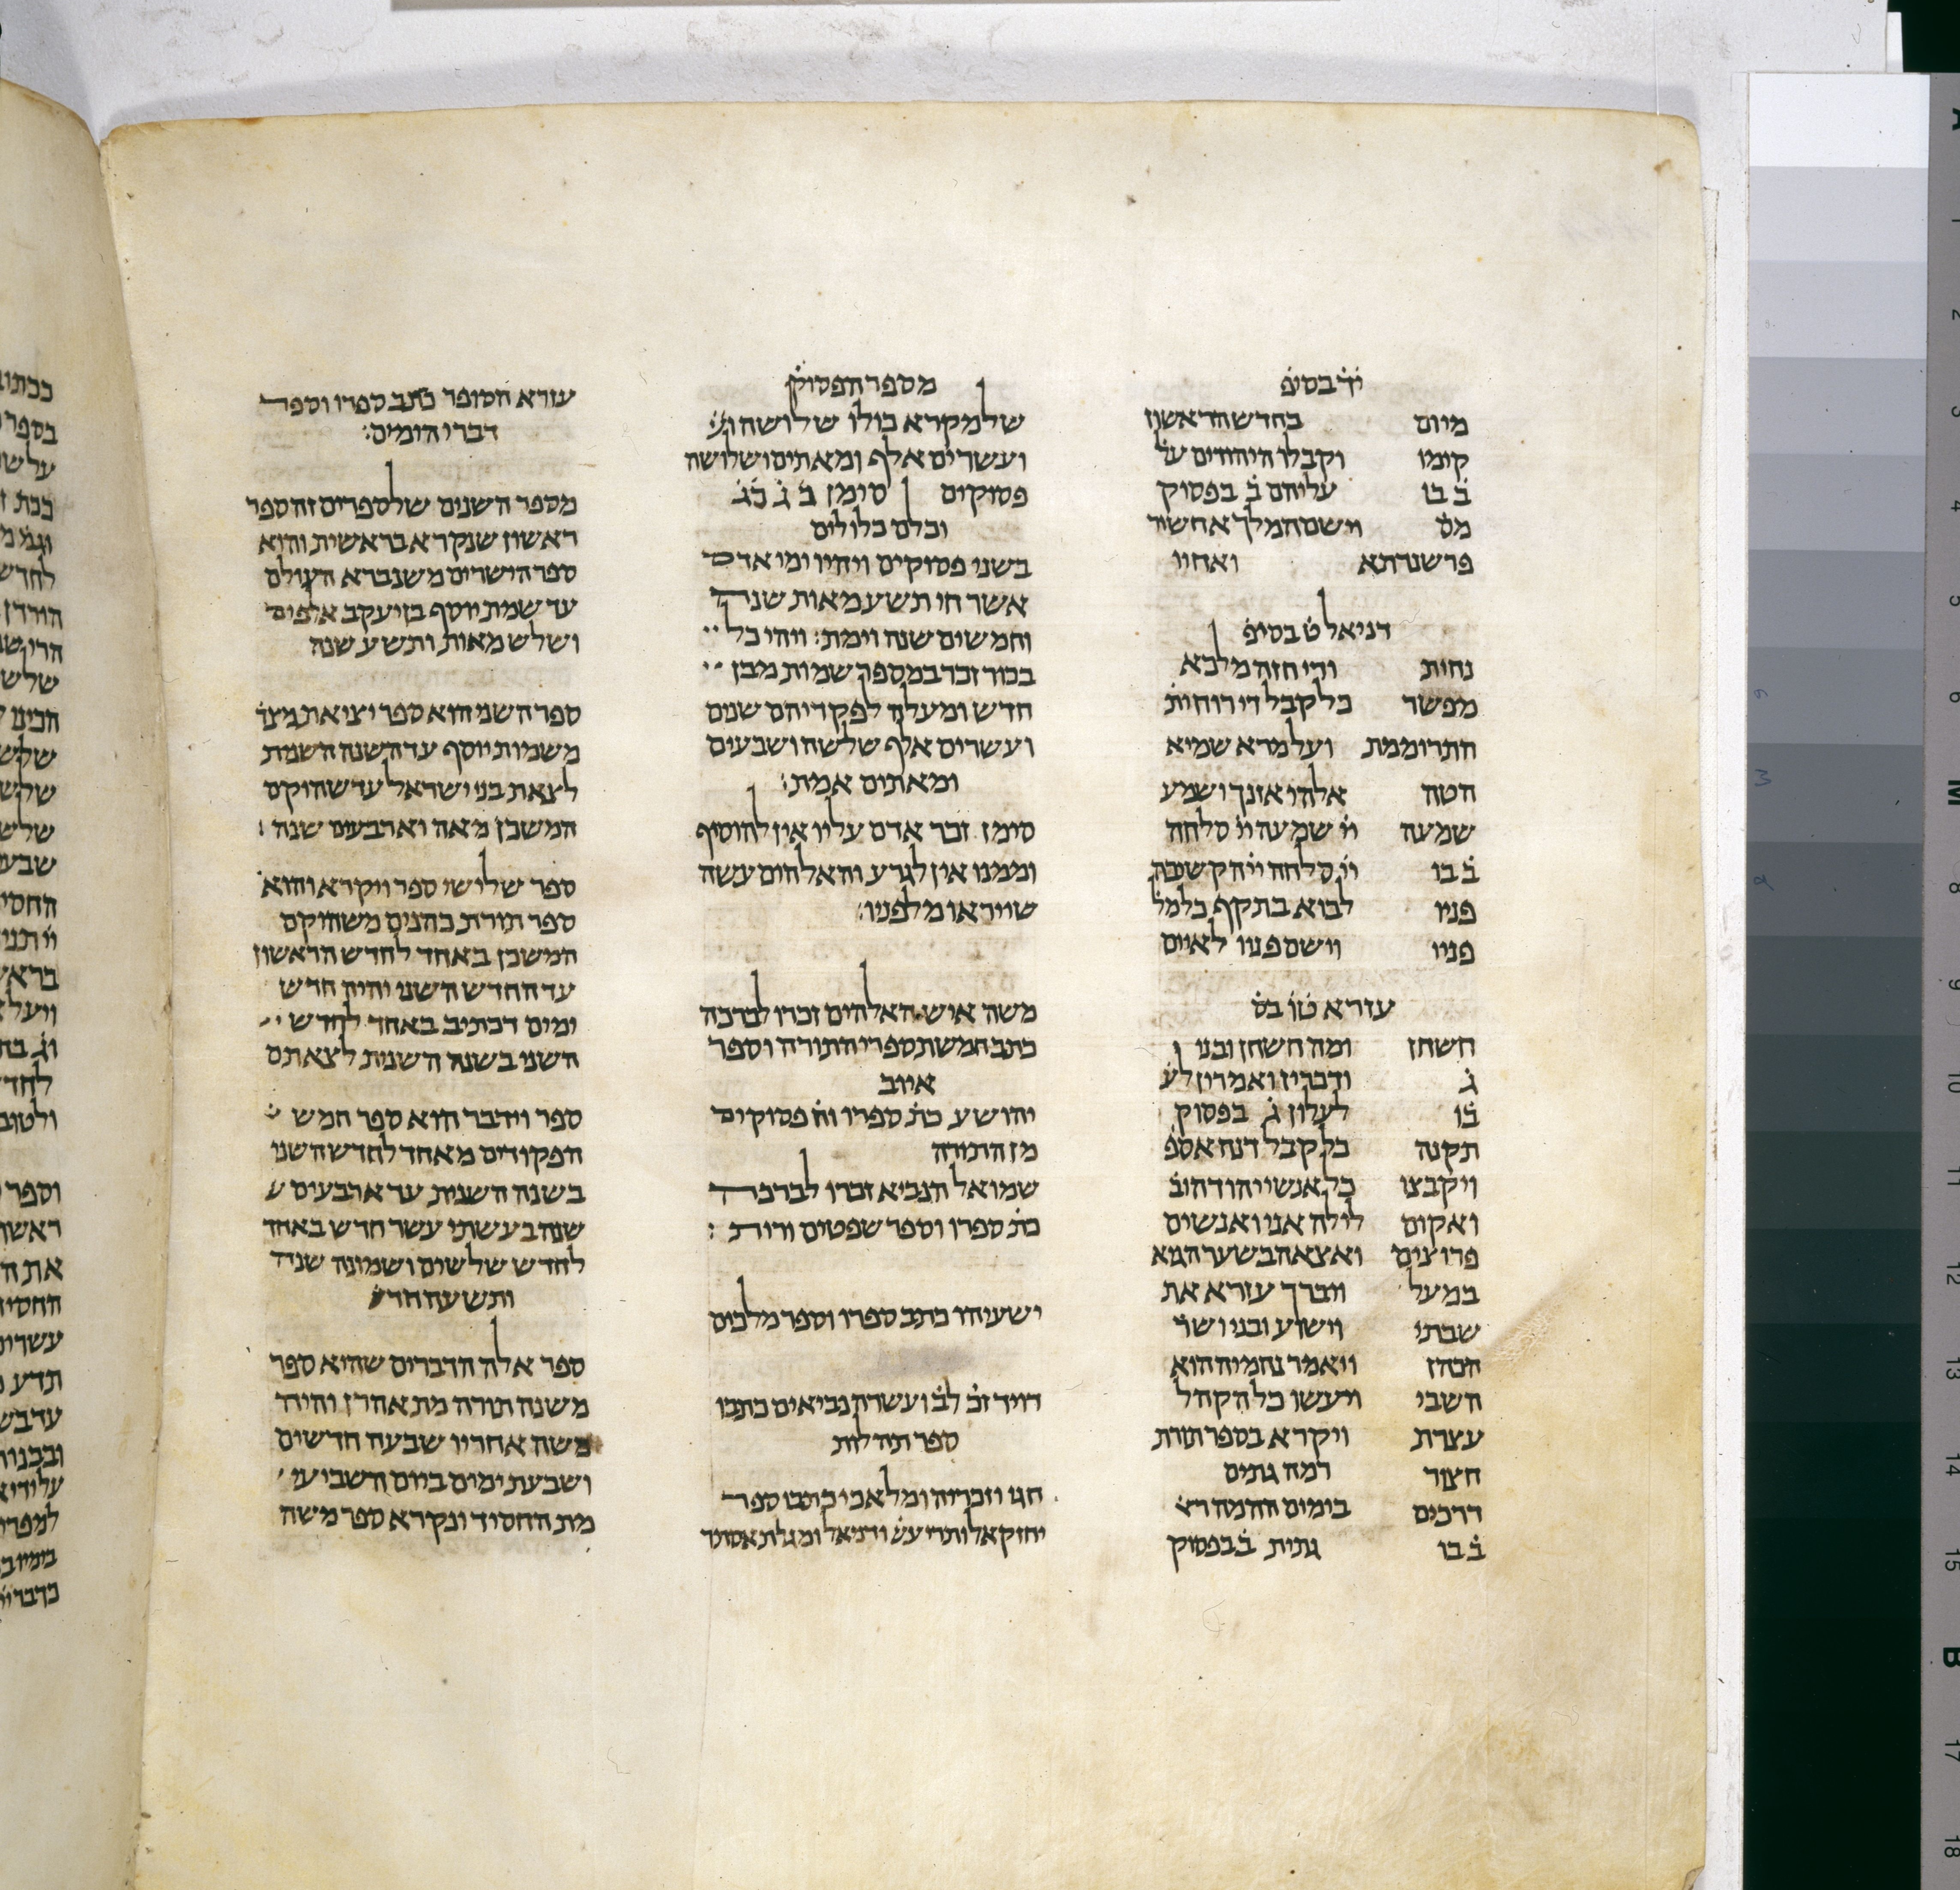 יד בסיפ
מיום בחדש הראשון
קימו וקבלו היהודים על
ב בו עליהם ב בפסוק
מס וישם המלך אחשיר
פרשנדתא ואחיו
דניאל ט בסיפ
נחית ודי חזה מלכא
מפשר כל קבל די רוח ית
התרוממת ועל מרא שמיא
הטה אלהי אזנך ושמע
שמעה יי שמעה יי סלחה
ב בו יי סלחה יי הקשיבה
פניו לבוא בתקף כל מל
פניו וישם פניו לאיים
עזרא טו בס
חשחן ומה חשחן ובני
ג ודכרין ואמרין לע
בו לעלון ג בפסוק
תקנה כל קבל דנה אספ
ויקבצו כל אנשי יהודה וב
ואקום לילה אני ואנשים
פרוצים ואצאה בשער הגא
במעל ויברך עזרא את
שבתי וישוע ובני ושר
הכהן ויאמר נחמיה הוא
השבי ויעשו כל הקהל
עצרת ויקרא בספר תורת
חצור רמה גתים
דרכים בימים ההמה רא
ב בו גתית ב בפסוק
מספר הפסוק
שלמקרא כולו שלושה וע
ועשרים אלף ומאתים ושלושה
פסוקים סימן ב ג כג
וכלם כלולים
בשני פסוקים ויהיו ימי אדם
אשר חי תשע מאות שנה
וחמשים שנה וימת: ויהי כל
בכור זכר במספר שמות מבן
חדש ומעלה לפקדיהם שנים
ועשרים אלף שלשה ושבעים
ומאתים אמת:
סימן זכר אדם עליו אין להוסיף
וממנו אין לגרע והאלהים עשה
שייראו מלפניו:
משה איש האלהים זכרו לברכה
כתב חמשת ספרי התורה וספר
איוב
יהושע כת ספרו וח פסוקים
מן התורה
שמואל הנביא זכרו לברכה
כת ספרו וספר שפטים ורות :
ישעיהו כתב ספרו וספר מלכים
דויד זכ לב ועשרה נביאים כתבו
ספר תהלות
חגי וזכריה ומלאכי כתבו ספר
יחזקאל ותרי עש ודניאל ומגלת אסתר
עזרא הסופר כתב ספרו וספר
דברי הימים:
מספר השנים שלספרים זה ספר
ראשון שנקרא בראשית והוא
ספר הישרים משנברא העולם
עד שמת יוסף בן יעקב אלפים
ושלש מאות ותשע שנה
ספר השני הוא ספר יציאת מצר
משמות יוסף עד השנה השנית
לצאת בני ישראל עד שהוקם
המשכן מאה וארבעים שנה :
ספר שלישי ספר ויקרא והוא
ספר תורת כהנים משהוקם
המשכן באחד לחדש הראשון
עד החדש השני והיה חדש
ימים דכתיב באחד לחדש
השני בשנה השנית לצאתם
ספר וידבר הוא ספר חמש
הפקודים מאחד לחדש השני
בשנה השנית עד ארבעים ש
שנה בעשתי עשר חדש באחד
לחדש שלשים ושמונה שנה
ותשעה חדש
ספר אלה הדברים שהוא ספר
משנה תורה מת אהרן והיה
משה אחריו שבעה חדשים
ושבעת ימים ביום השביעי
מת החסיד ונקרא ספר משה